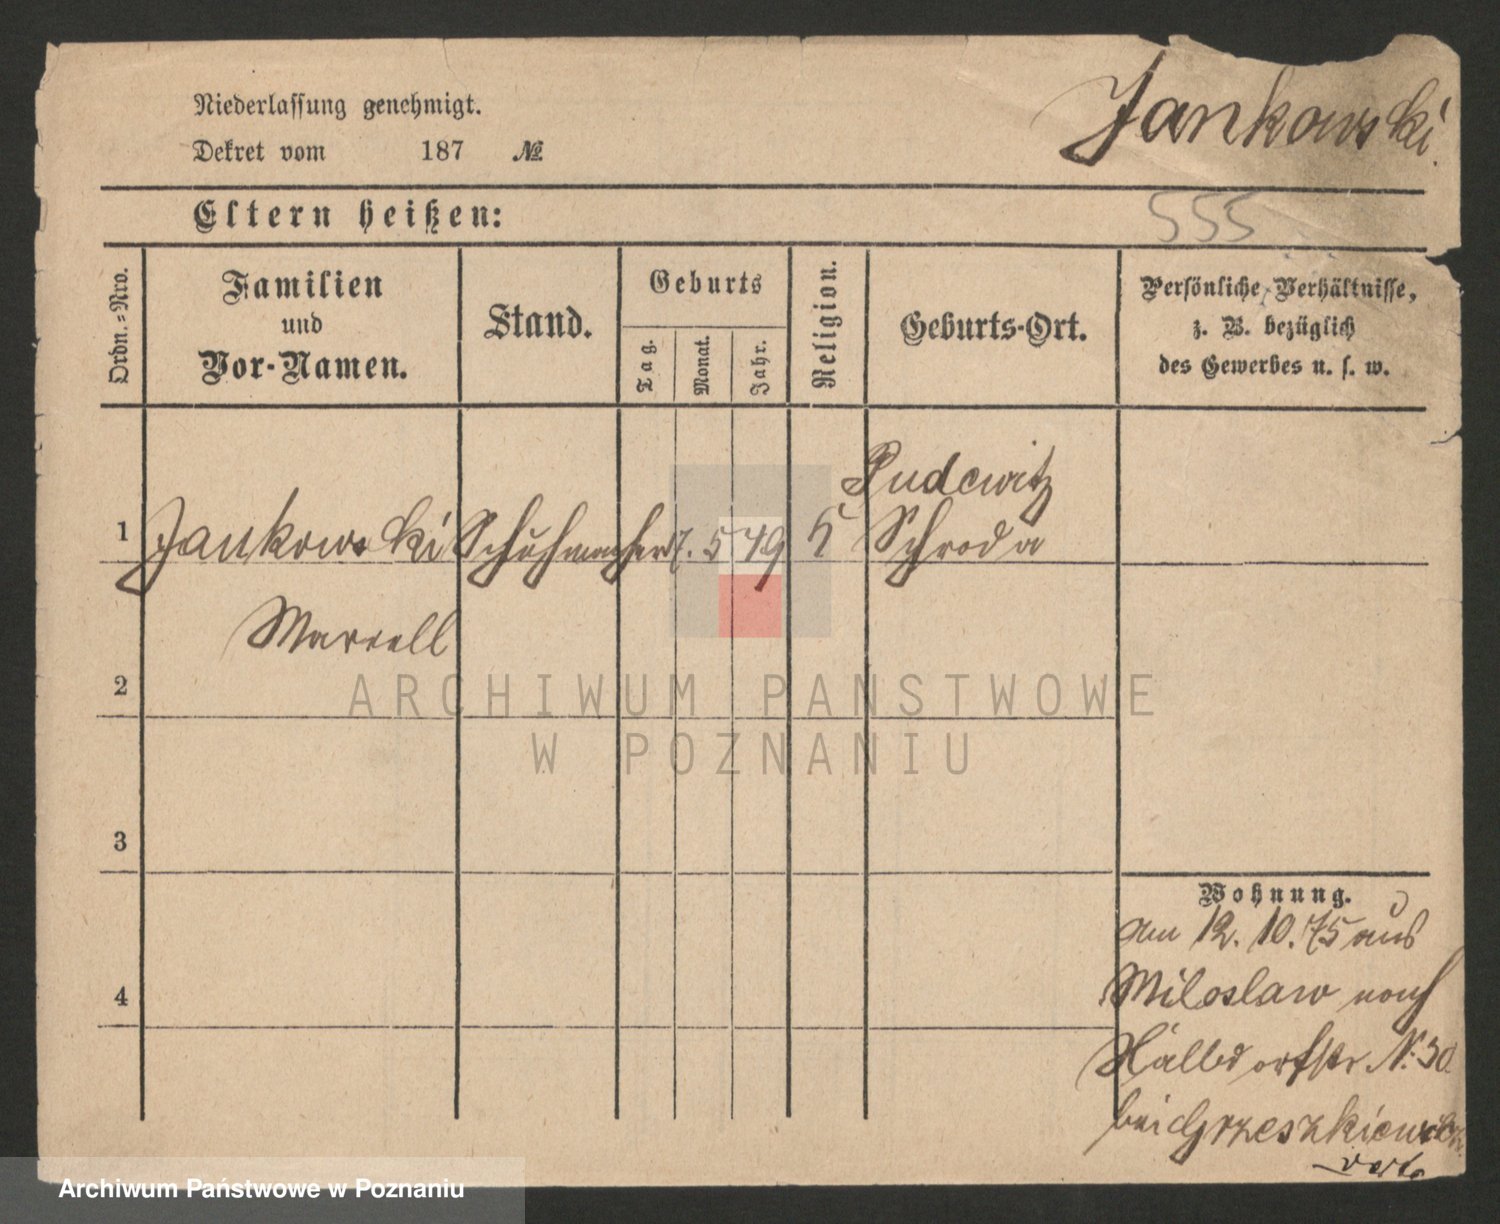 Jankowski.
Niederlassung genehmigt.
Dekret vom 187 №
Eltern heißen:
555
Ordn.-Nro.
Familien
und
Vor-Namen.
Stand.
Geburts
Tag.
Monat.
Jahr.
Religion.
Geburts-Ort.
Persönliche Verhältnisse,
z. B. bezüglich
des Gewerbes u. s. w.
Pudewitz
1 Jankowski Schuhmacher 7. 5 49 Schroda
Marcell
2
3
4
Wohnung.
am 12. 10. 75 aus
Miloslaw nach
Halbdorfstr N. 30
bei Grzeszkiewicz
verte
ARCHIWUM PAŃSTWOWE
W POZNANIU
Archiwum Państwowe w Poznaniu